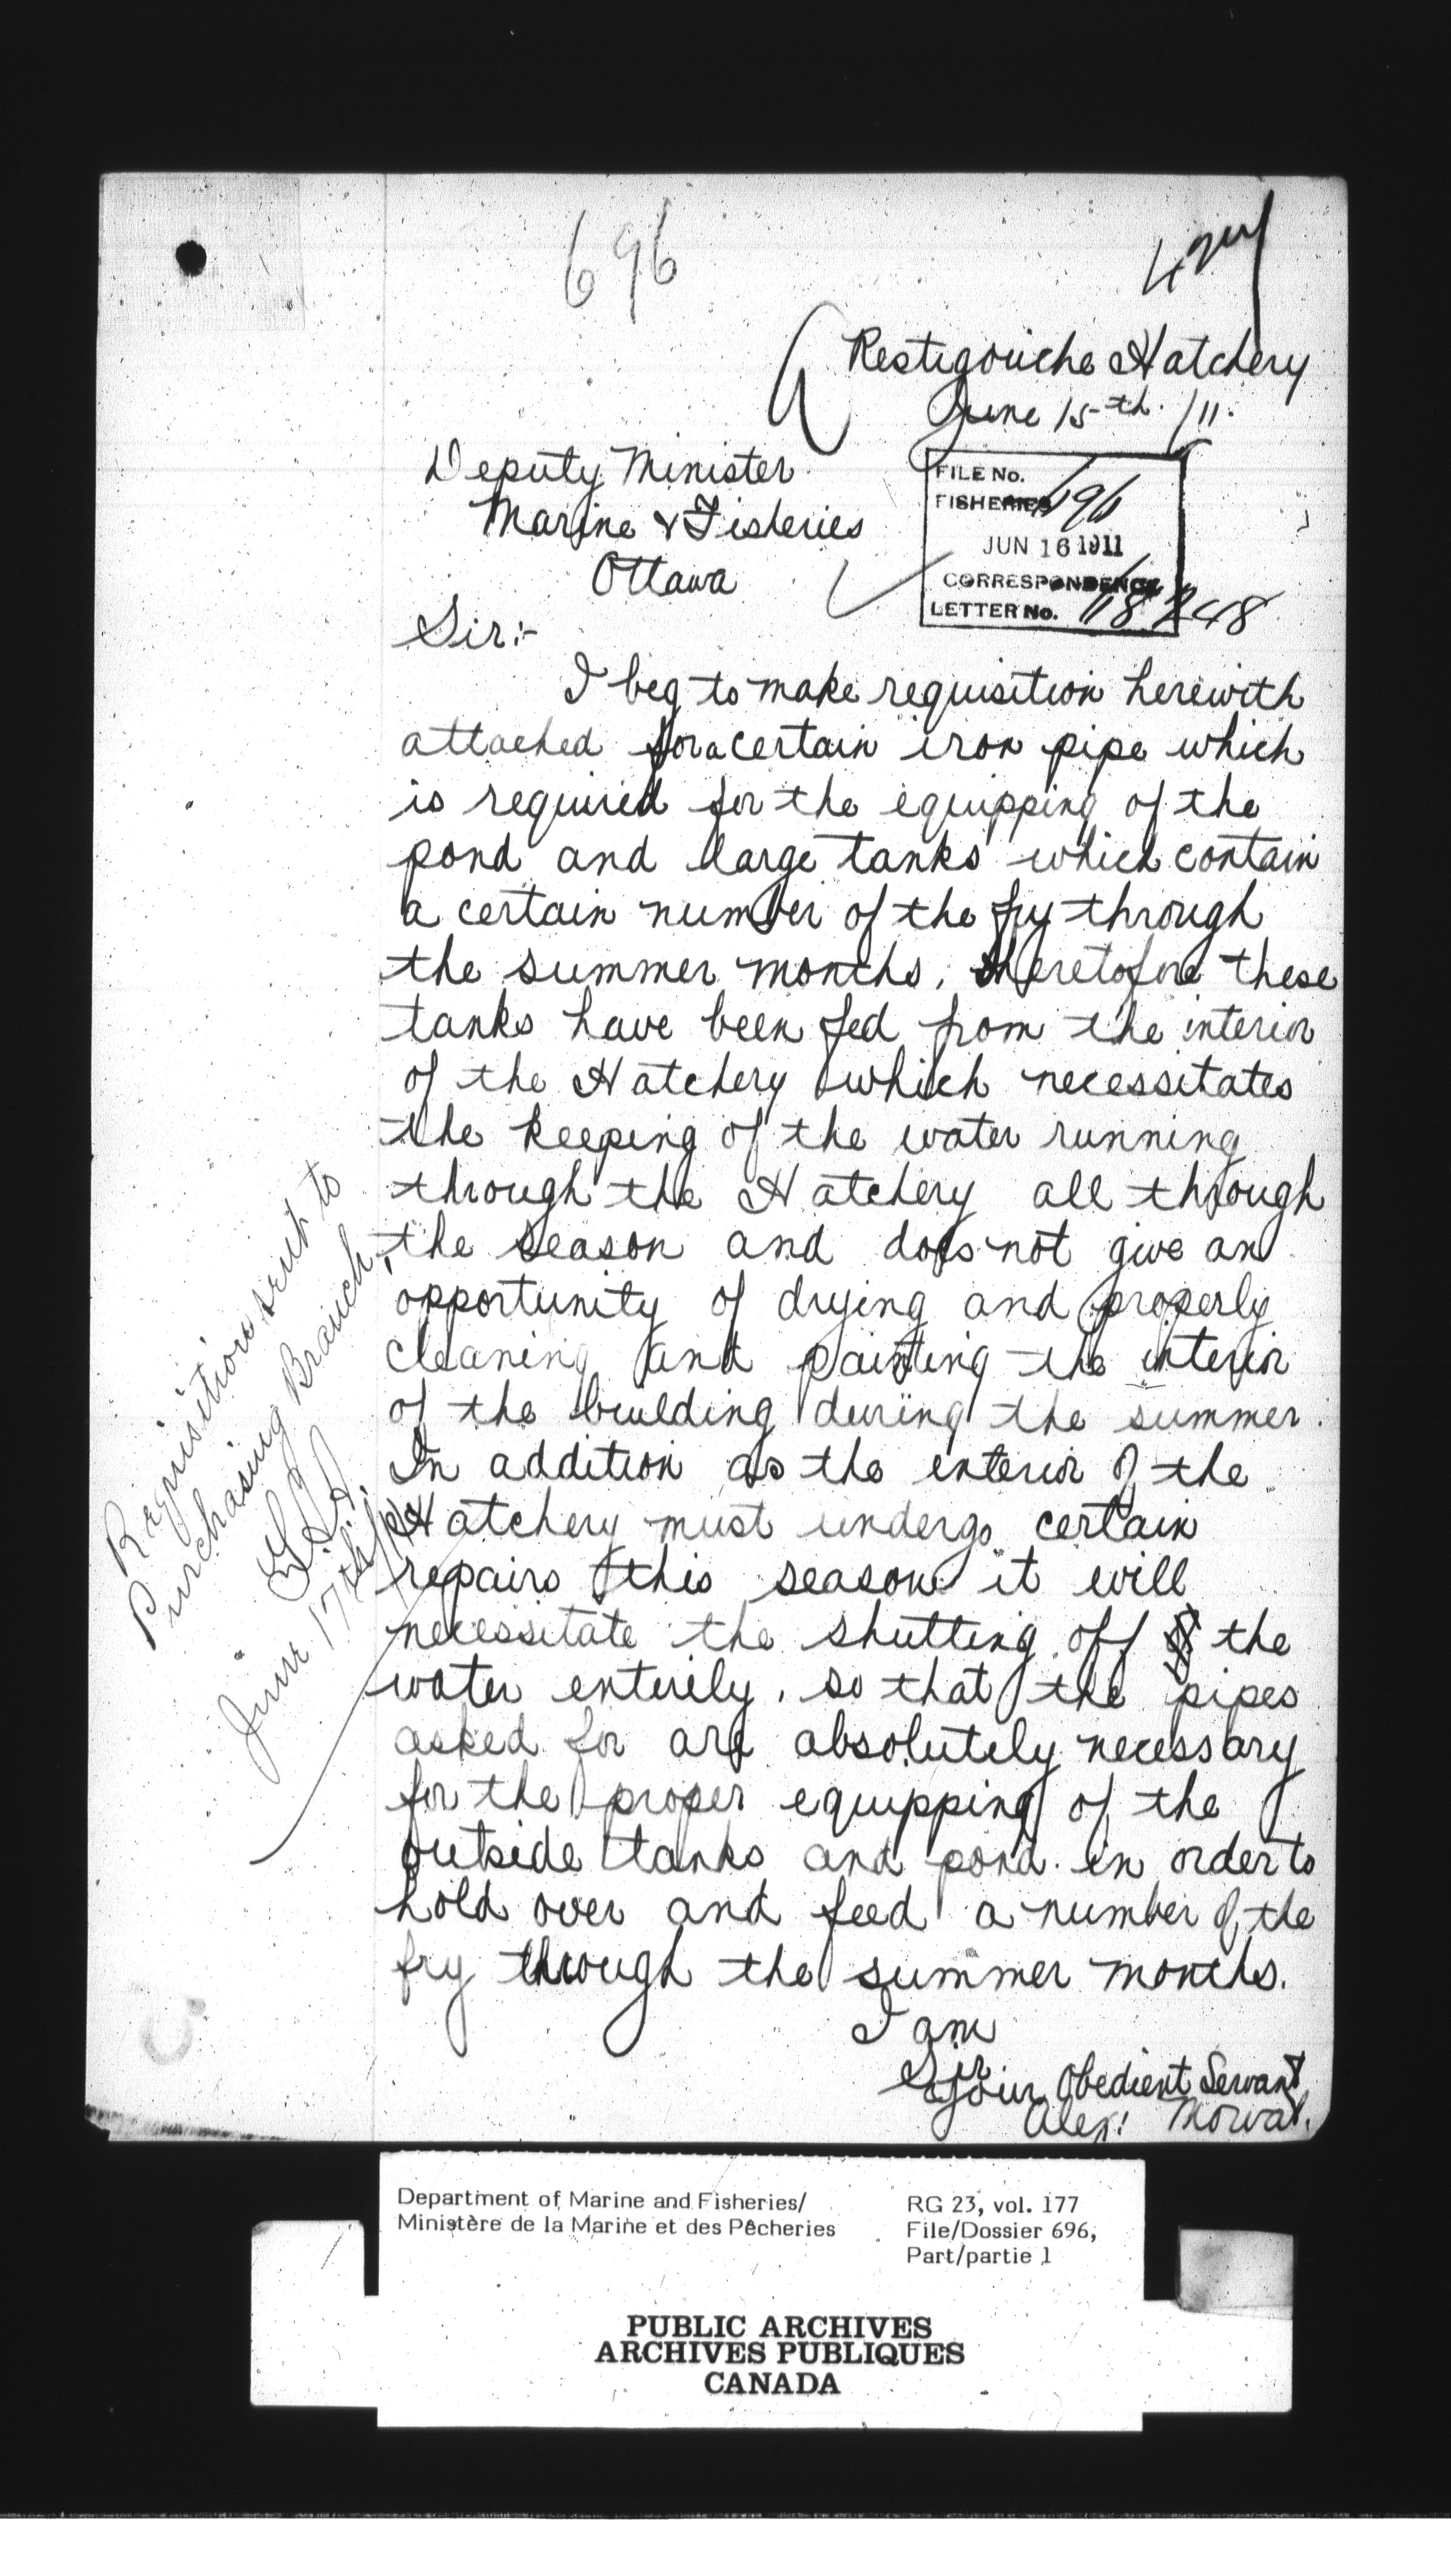 696
Restigouche Hatchery
June 15th. /11.
Deputy Minister
Marine & Fisheries
Ottawa
FILE No.
FISHERIES 696
JUN 16 1911
CORRESPONDENCE
LETTER No. 118248
Sir:-
I beg to make requisition herewith
attached for a certain iron pipe which
is required for the equipping of the
pond and large tanks which contain
a certain number of the fry through
the summer months, heretofore these
tanks have been fed from the interior
of the Hatchery which necessitates
the keeping of the water running
through the Hatchery all through
the season and does not give an
opportunity of drying and properly
cleaning and painting the interior
of the building during the summer.
In addition as the interior of the
Hatchery must undergo certain
repairs this season it will
necessitate the shutting off the
water entirely, so that the pipes
asked for are absolutely necessary
for the proper equipping of the
outside tanks and pond in order to
hold over and feed a number of the
fry through the summer months.
I am
Sir
Your Obedient Servant
Alex: Mowat.
Requisition sent to
Purchasing Branch,
June 17th/11
Department of Marine and Fisheries/
Ministère de la Marine et des Pêcheries
RG 23, vol. 177
File/Dossier 696,
Part/partie 1
PUBLIC ARCHIVES
ARCHIVES PUBLIQUES
CANADA